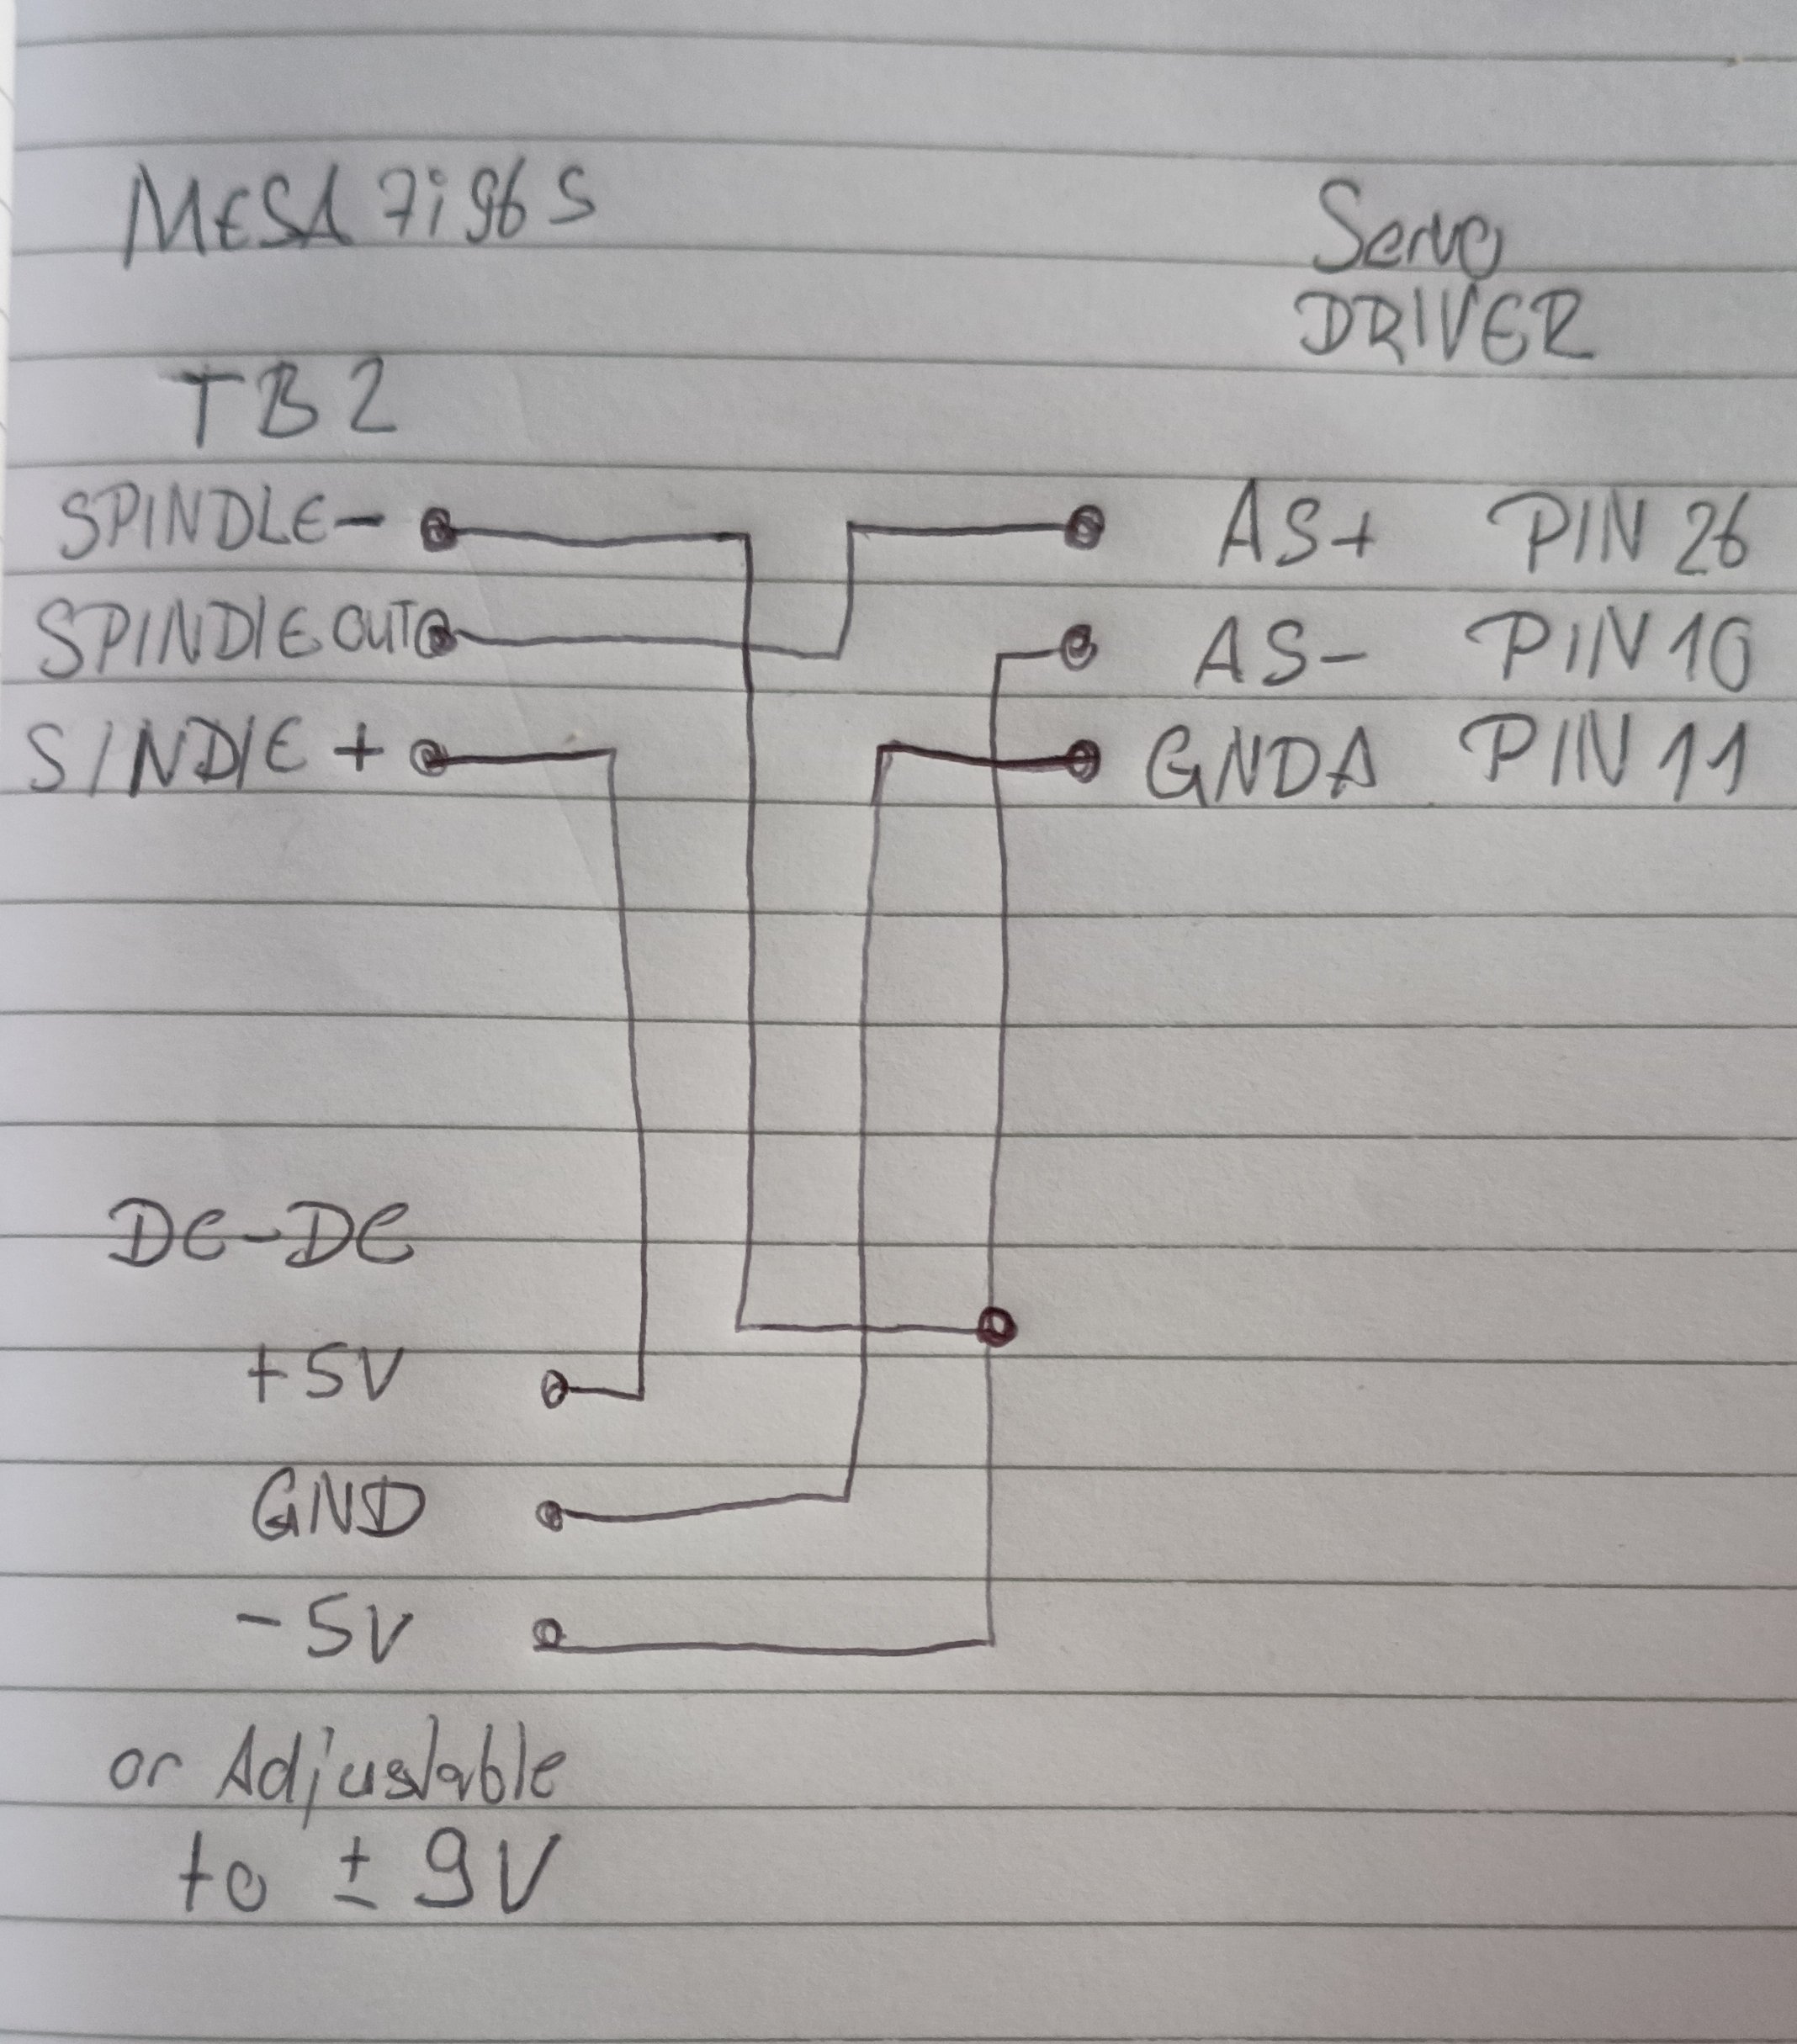 MESA 7i96 S
Servo
DRIVER
TB2
SPINDLE- AS+ PIN 26
SPINDlE OUT AS- PIN 10
SINDlE + GNDA PIN 11
DC-DC
+5V
GND
-5V
or Adjustable
to ± 9V